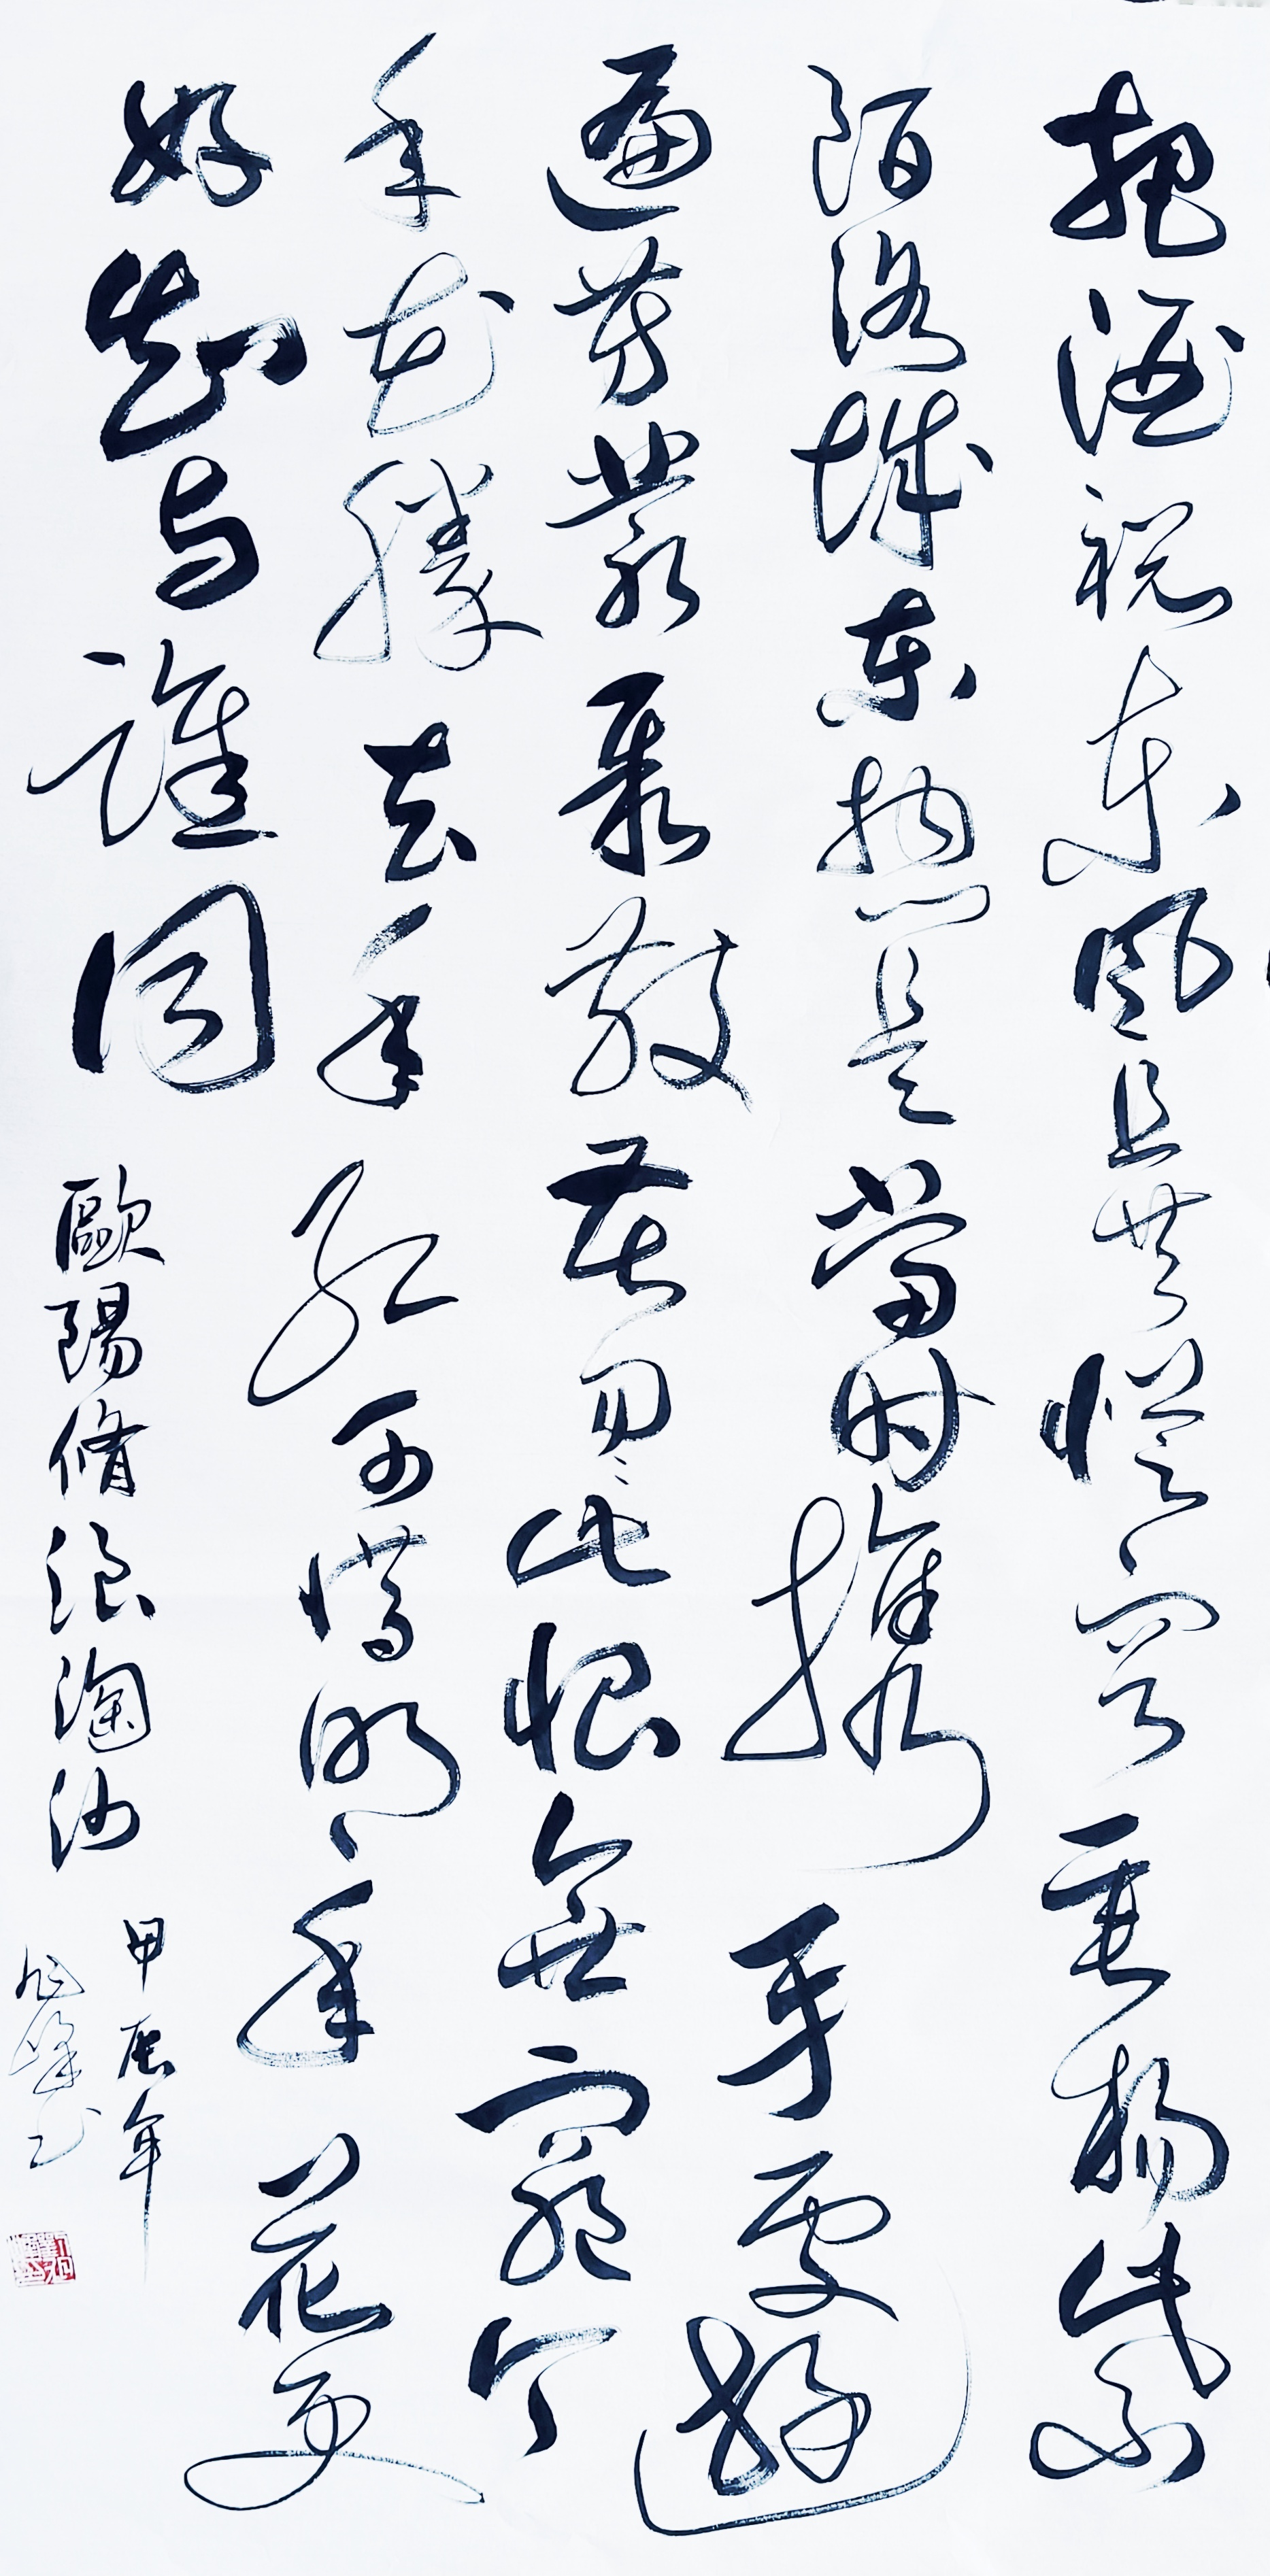 把酒祝東風且共從容垂楊紫
陌洛城東揔是當時攜手處遊
遍芳叢聚散苦匆匆此恨無窮今
年花勝去年紅可惜明年花更
好知与誰同
歐陽脩浪淘沙
甲辰年